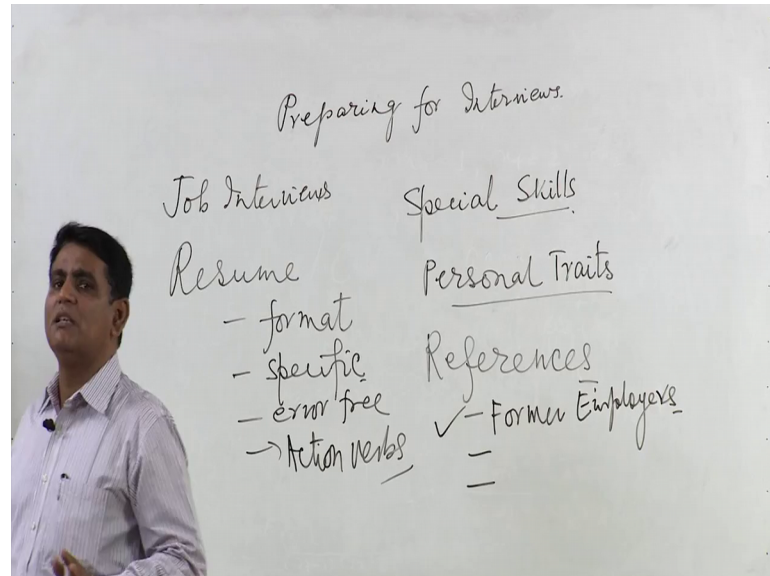 Preparing for Interviews.
Job Interviews
Resume
- format
- specific
- error free
→ Action verbs
Special Skills
Personal Traits
References
✓ - Former Employers
-
-